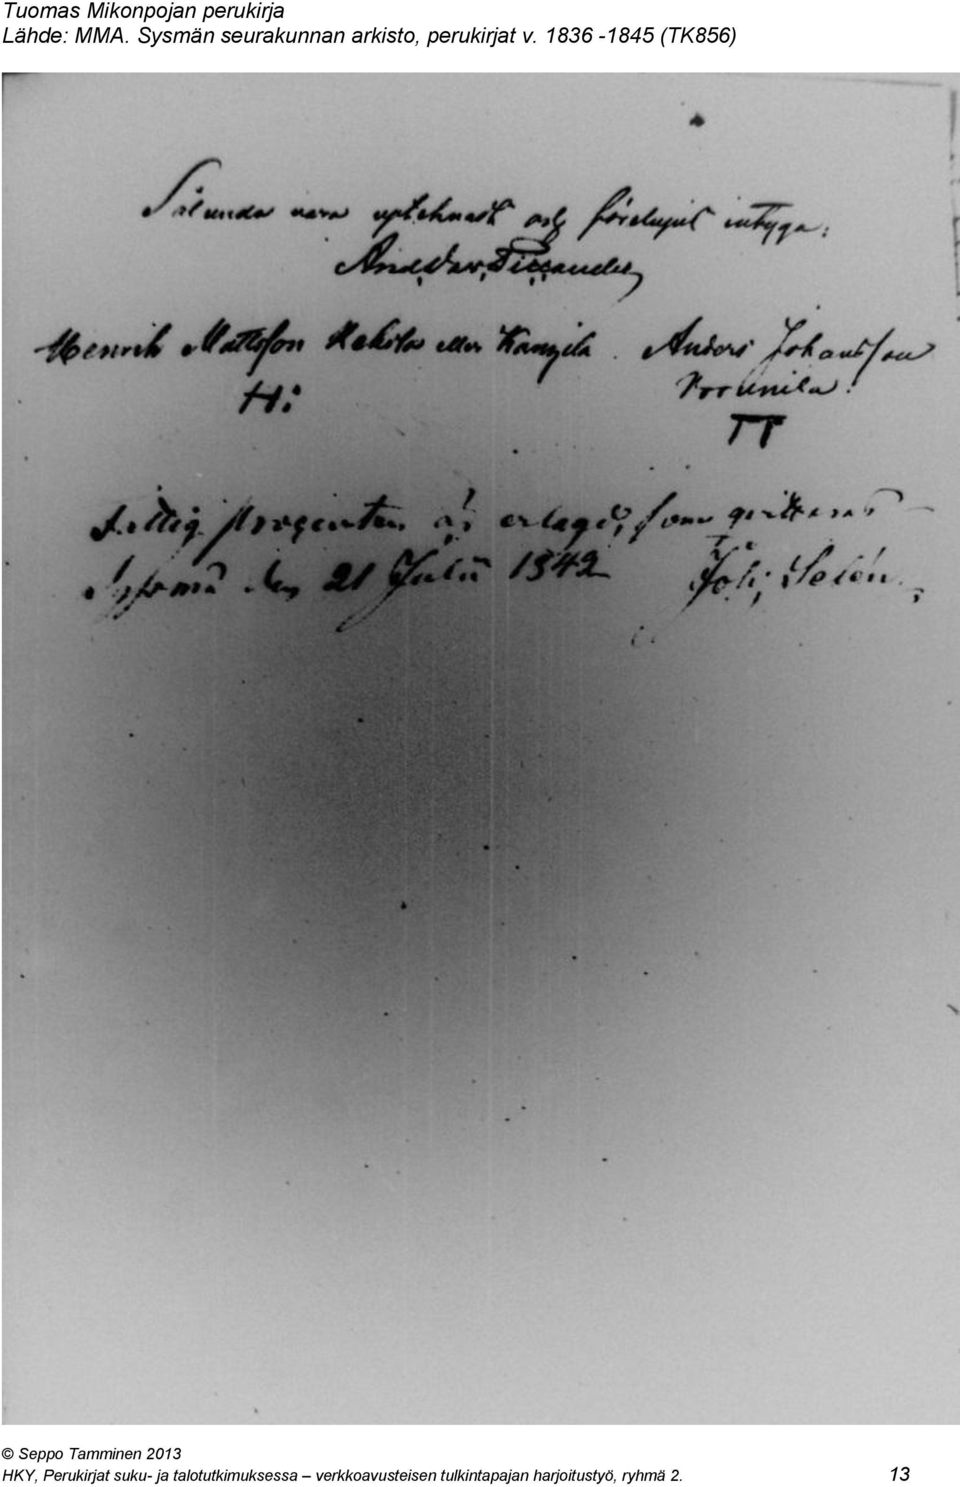 Tuomas Mikonpojan perukirja
Lähde: MMA. Sysmän seurakunnan arkisto, perukirjat v. 1836 -1845 (TK856)
Sålunda vara upteknadt och förelupit intyga:
Henrik Mattsson Kekola eller Kangila. Anders Johansson
H: Kornnila:
TT
Fattig procenten är erlagd, som qvitteras
Sysmä den 21 Julii 1842 Joh: Selén.
© Seppo Tamminen 2013
HKY, Perukirjat suku- ja talotutkimuksessa – verkkoavusteisen tulkintapajan harjoitustyö, ryhmä 2. 13